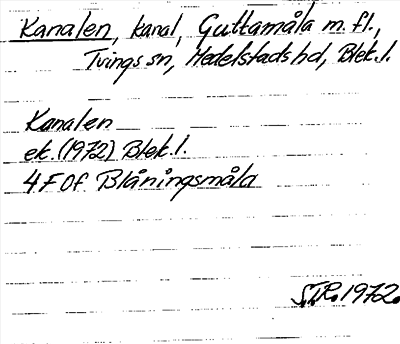 Kanalen, kanal, Guttamåla m.fl.,
Tvings sn, Medelstads hd, Blek.l.
Kanalen
ek. (1972) Blek.l.
4F0f Blåningsmåla
S.I.R. 1972.